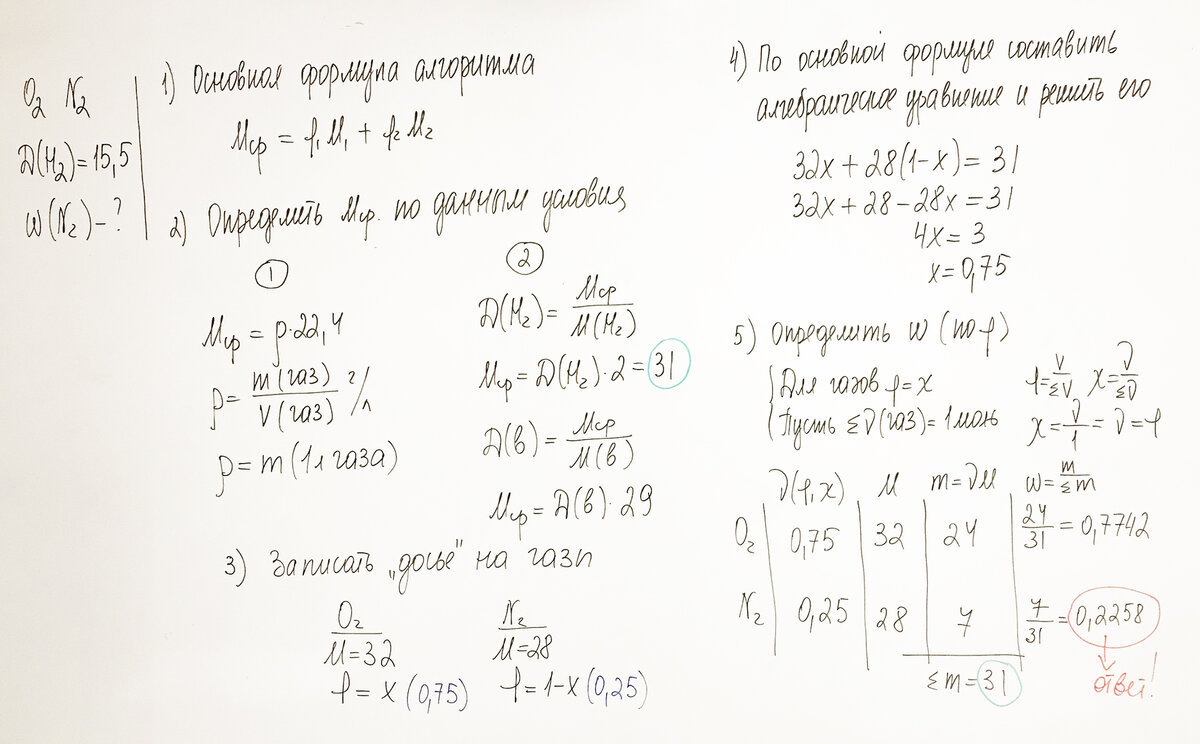 O₂ N₂
D(H₂)=15,5
W(N₂)-?
1) Основная формула алгоритма
Mср = φ₁M₁ + φ₂M₂
2) Определить Mср. по данным условия
①
Mср = ρ·22,4
ρ = m(газ)/V(газ) г/л
ρ = m(1л газа)
②
D(H₂) = Mср/M(H₂)
Mср = D(H₂)·2 = 31
D(в) = Mср/M(в)
Mср = D(в)·29
3) Записать „досье" на газы
O₂
M=32
φ = x (0,75)
N₂
M=28
φ = 1-x (0,25)
4) По основной формуле составить
алгебраическое уравнение и решить его
32x + 28(1-x) = 31
32x + 28 - 28x = 31
4x = 3
x = 0,75
5) Определить w (по φ)
Для газов φ = x
Пусть Σν(газ) = 1 моль
φ = V/ΣV x = ν/Σν
x = ν/1 = ν = φ
ν(φ,x) M m=νM w = m/Σm
O₂ 0,75 32 24 24/31 = 0,7742
N₂ 0,25 28 7 7/31 = 0,2258
Σm = 31
ответ!